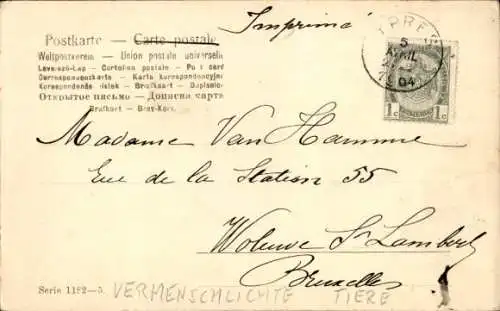 Imprimé
Postkarte — Carte postale
Weltpostverein — Union postale universelle
Levelező-Lap — Cartolina postale — Po card
Correspondenzkarte — Karta korespondencyjna
Korespondenční lístek — Briefkaart — Dopisnice
Открытое письмо — Дописна карта
Brefkort — Brev-Kort
YPRES
5
AVRIL
04
1c 1c
Madame Van Hamme
Rue de la Station 55
Woluwe St Lambert
Bruxelles
Serie 1182—5.
VERMENSCHLICHTE TIERE